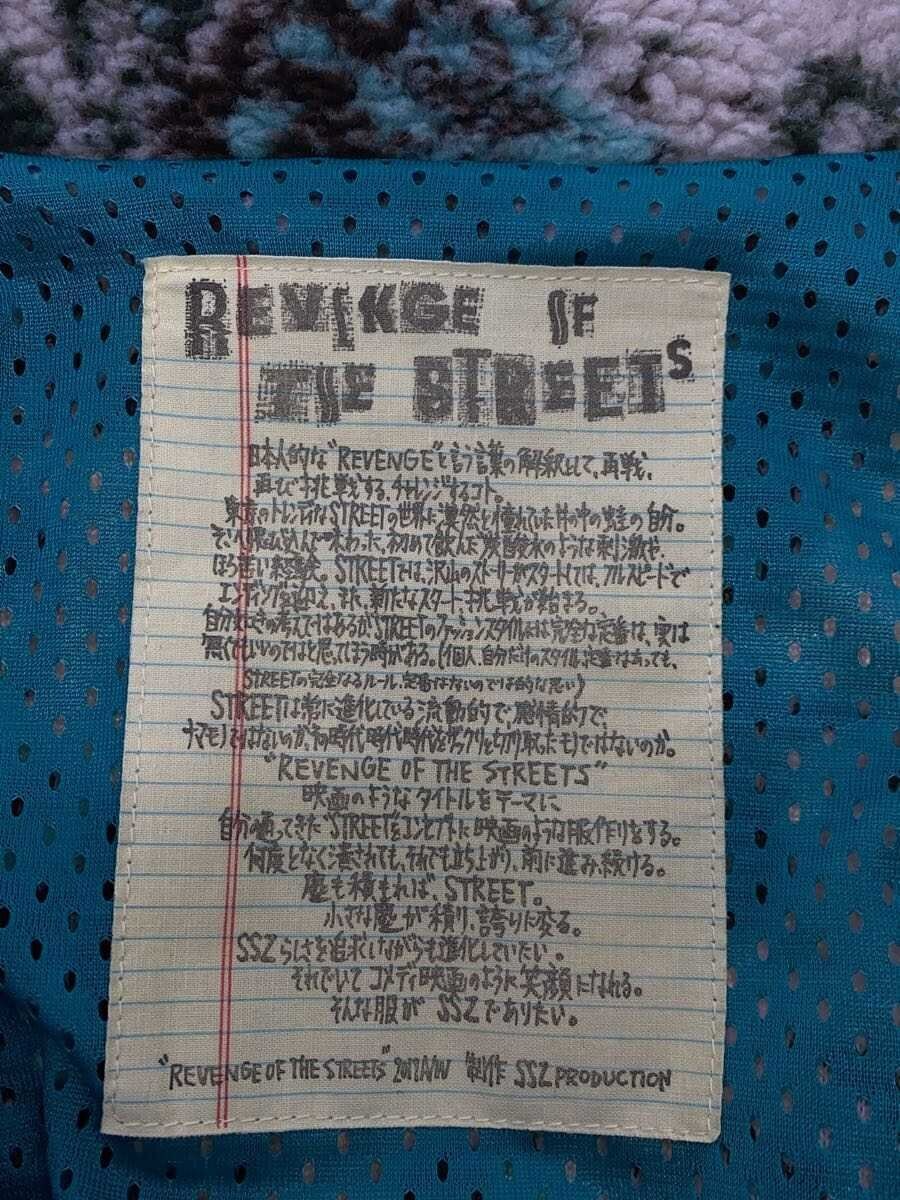 REVENGE OF
THE STREETS
日本人的な"REVENGE"と言う言葉の解釈として、再戦、
再び挑戦する、チャレンジするコト。
東京のトレンディなSTREETの世界に漠然と憧れていた井の中の蛙の自分。
そこへ飛び込んで味わった、初めて飲んだ炭酸水のような刺激や、
ほろ苦い経験。STREETでは、沢山のストーリーがスタートしては、フルスピードで
エンディングを迎え、また、新たなスタート、挑戦が始まる。
自分なりの考えではあるが"STREETのファッションスタイルには完全な定番は、実は
無くてもいいのではと思ってしまう時がある。(個人、自分だけのスタイル、定番はあっても、
STREETの完全なるルール、定番はないのでは的な思い)
STREETは常に進化している流動的で、感情的で、
ナマモノではないのか、その時代時代時代をザックリと切り取ったモノではないのか。
"REVENGE OF THE STREETS"
映画のようなタイトルをテーマに
自分の通ってきた"STREET"をコンセプトに映画のような服作りをする。
何度となく潰されても、それでも立ち上がり、前に進み、続ける。
塵も積もれば、STREET。
小さな塵が積り、誇りに変る。
SSZらしさを追求しながらも進化していたい。
それでいてコメディ映画のように笑顔になれる。
そんな服がSSZでありたい。
"REVENGE OF THE STREETS" 2017A/W 製作 SSZ PRODUCTION